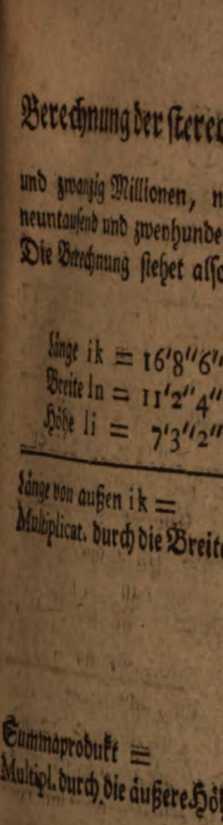 Berechnung der
und zwanzig Millionen, n
neuntausend und zweyhunde
Die Berechnung stehet also
Länge ik = 16'8''6''
Breite ln = 11'2''4''
Höhe li = 7'3''2''
Länge von außen ik =
Multiplicat. durch die Breite
Summaprodukt =
Multipl. durch die äußere Höh